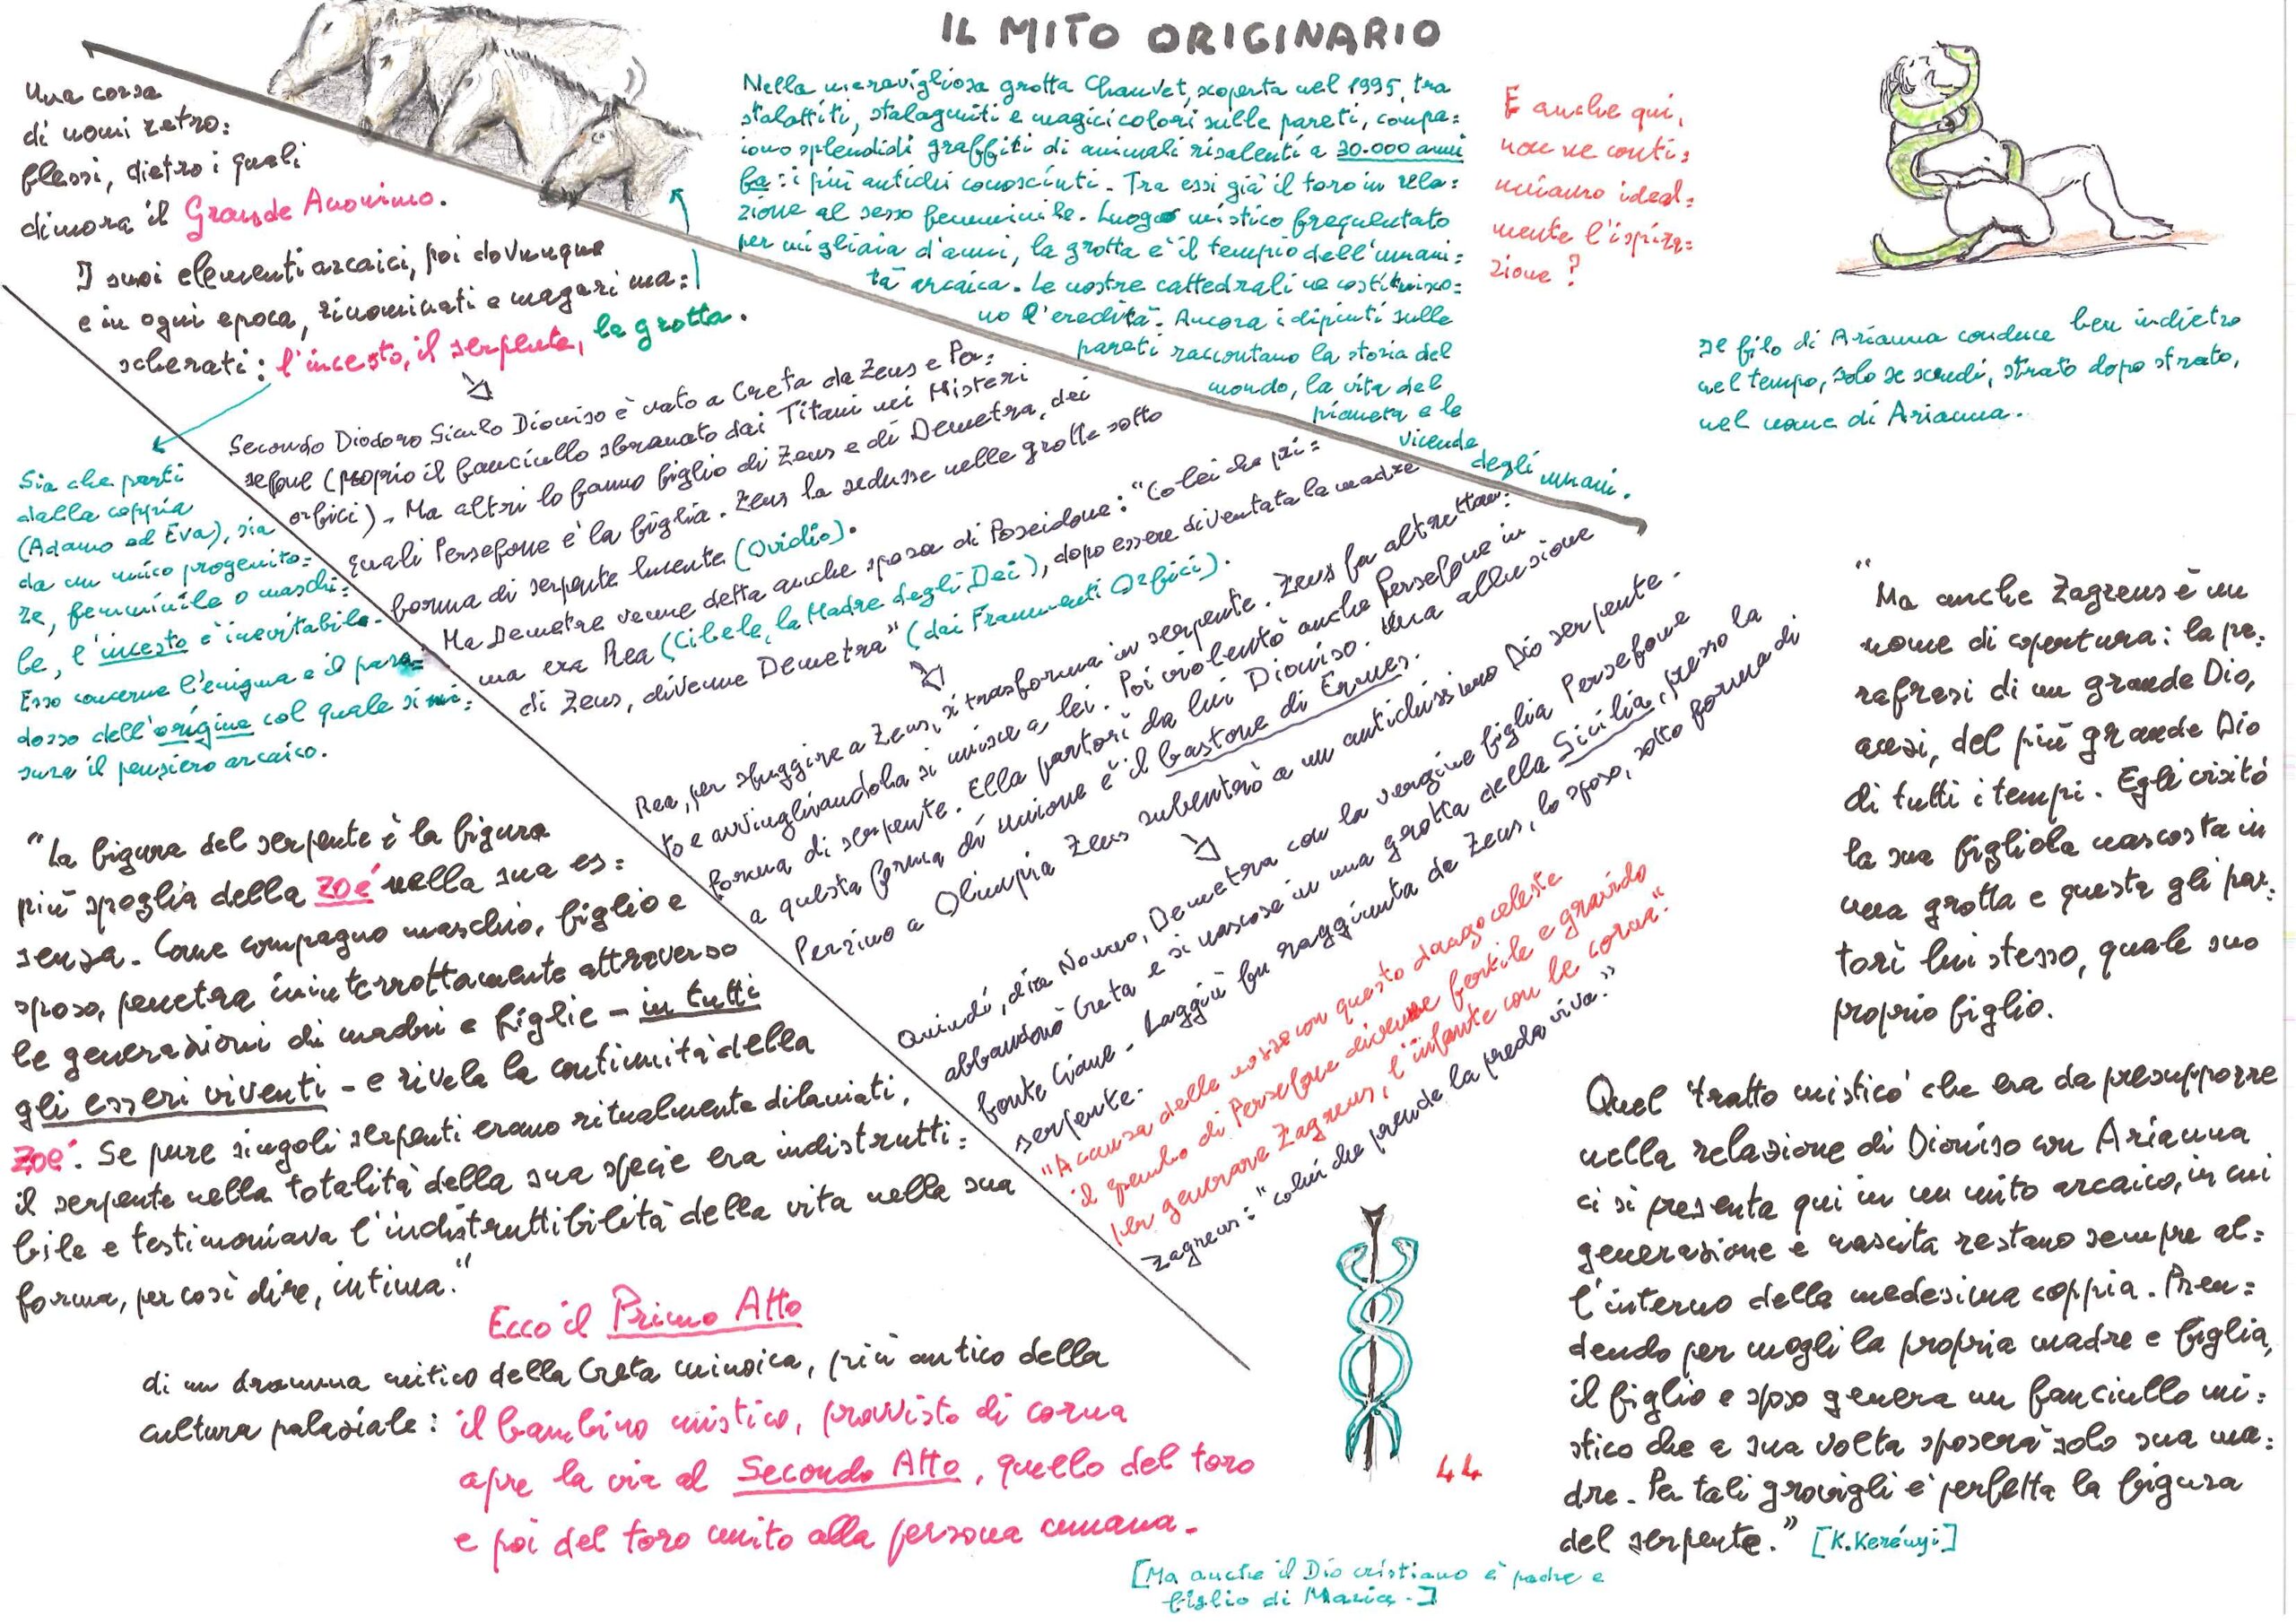 IL MITO ORIGINARIO
Una corsa
di nomi retro=
flessi, dietro i quali
dimora il Grande Anonimo.
I suoi elementi arcaici, poi dovunque
e in ogni epoca, rinominati e magari ma=
scherati: l'incesto, il serpente, la grotta.
Nella meravigliosa grotta Chauvet, scoperta nel 1995, tra
stalattiti, stalagmiti e magici colori sulle pareti, compa=
iono splendidi graffiti di animali risalenti a 30.000 anni
fa: i più antichi conosciuti. Tra essi già il toro in rela=
zione al sesso femminile. Luogo mistico frequentato
per migliaia d'anni, la grotta è il tempio dell'umani=
tà arcaica. Le nostre cattedrali ne costituisco=
no l'eredità. Ancora i dipinti sulle
pareti raccontano la storia del
mondo, la vita del
pianeta e le
vicende
degli umani.
E anche qui,
non ne conti=
nuiamo ideal=
mente l'ispira=
zione?
Il filo di Arianna conduce ben indietro
nel tempo, solo se scendi, strato dopo strato,
nel nome di Arianna.
Sia che parti
dalla coppia
(Adamo ed Eva), sia
da un unico progenito=
re, femminile o maschi=
le, l'incesto è inevitabile.
Esso concerne l'enigma e il para=
dosso dell'origine col quale si mi=
sura il pensiero arcaico.
Secondo Diodoro Siculo Dioniso è nato a Creta da Zeus e Per=
sefone (proprio il fanciullo sbranato dai Titani nei Misteri
orfici). Ma altri lo fanno figlio di Zeus e di Demetra, dei
quali Persefone è la figlia. Zeus la sedusse nelle grotte sotto
forma di serpente lucente (Ovidio).
Ma Demetra venne detta anche sposa di Poseidone: "Colei che pri=
ma era Rea (Cibele, la Madre degli Dei), dopo essere diventata la madre
di Zeus, divenne Demetra" (dai Frammenti Orfici).
Rea, per sfuggire a Zeus, si trasforma in serpente. Zeus fa altrettan=
to e avvinghiandola si unisce a lei. Poi violentò anche Persefone in
forma di serpente. Ella partorì da lui Dioniso. Una allusione
a questa forma di unione è il bastone di Ermes.
Persino a Olimpia Zeus subentrò a un antichissimo Dio serpente.
Quindi, dice Nonno, Demetra con la vergine figlia Persefone
abbandonò Creta e si nascose in una grotta della Sicilia, presso la
fonte Ciane. Laggiù fu raggiunta da Zeus, lo sposo, sotto forma di
serpente.
"A causa delle nozze con questo drago celeste
il grembo di Persefone divenne fertile e gravido
per generare Zagreus, l'infante con le corna."
Zagreus: "colui che prende la preda viva."
"La figura del serpente è la figura
più spoglia della zoé nella sua es=
senza. Come compagno maschio, figlio e
sposo, penetra ininterrottamente attraverso
le generazioni di madri e figlie – in tutti
gli esseri viventi – e rivela la continuità della
zoé. Se pure singoli serpenti erano ritualmente dilaniati,
il serpente nella totalità della sua specie era indistrutti=
bile e testimoniava l'indistruttibilità della vita nella sua
forma, per così dire, intima."
Ecco il Primo Atto
di un dramma mitico della Creta minoica, più antico della
cultura palaziale: il bambino mistico, provvisto di corna
apre la via al Secondo Atto, quello del toro
e poi del toro unito alla persona umana.
"Ma anche Zagreus è un
nome di copertura: la pe=
rafrasi di un grande Dio,
anzi, del più grande Dio
di tutti i tempi. Egli visitò
la sua figliola nascosta in
una grotta e questa gli par=
torì lui stesso, quale suo
proprio figlio.
Quel 'tratto mistico' che era da presupporre
nella relazione di Dioniso con Arianna
ci si presenta qui in un mito arcaico, in cui
generazione e nascita restano sempre al=
l'interno della medesima coppia. Pren=
dendo per mogli la propria madre e figlia,
il figlio e sposo genera un fanciullo mi=
stico che a sua volta sposerà solo sua ma=
dre. Per tali grovigli è perfetta la figura
del serpente." [K. Kerényi]
44
[Ma anche il Dio cristiano è padre e
figlio di Maria.]